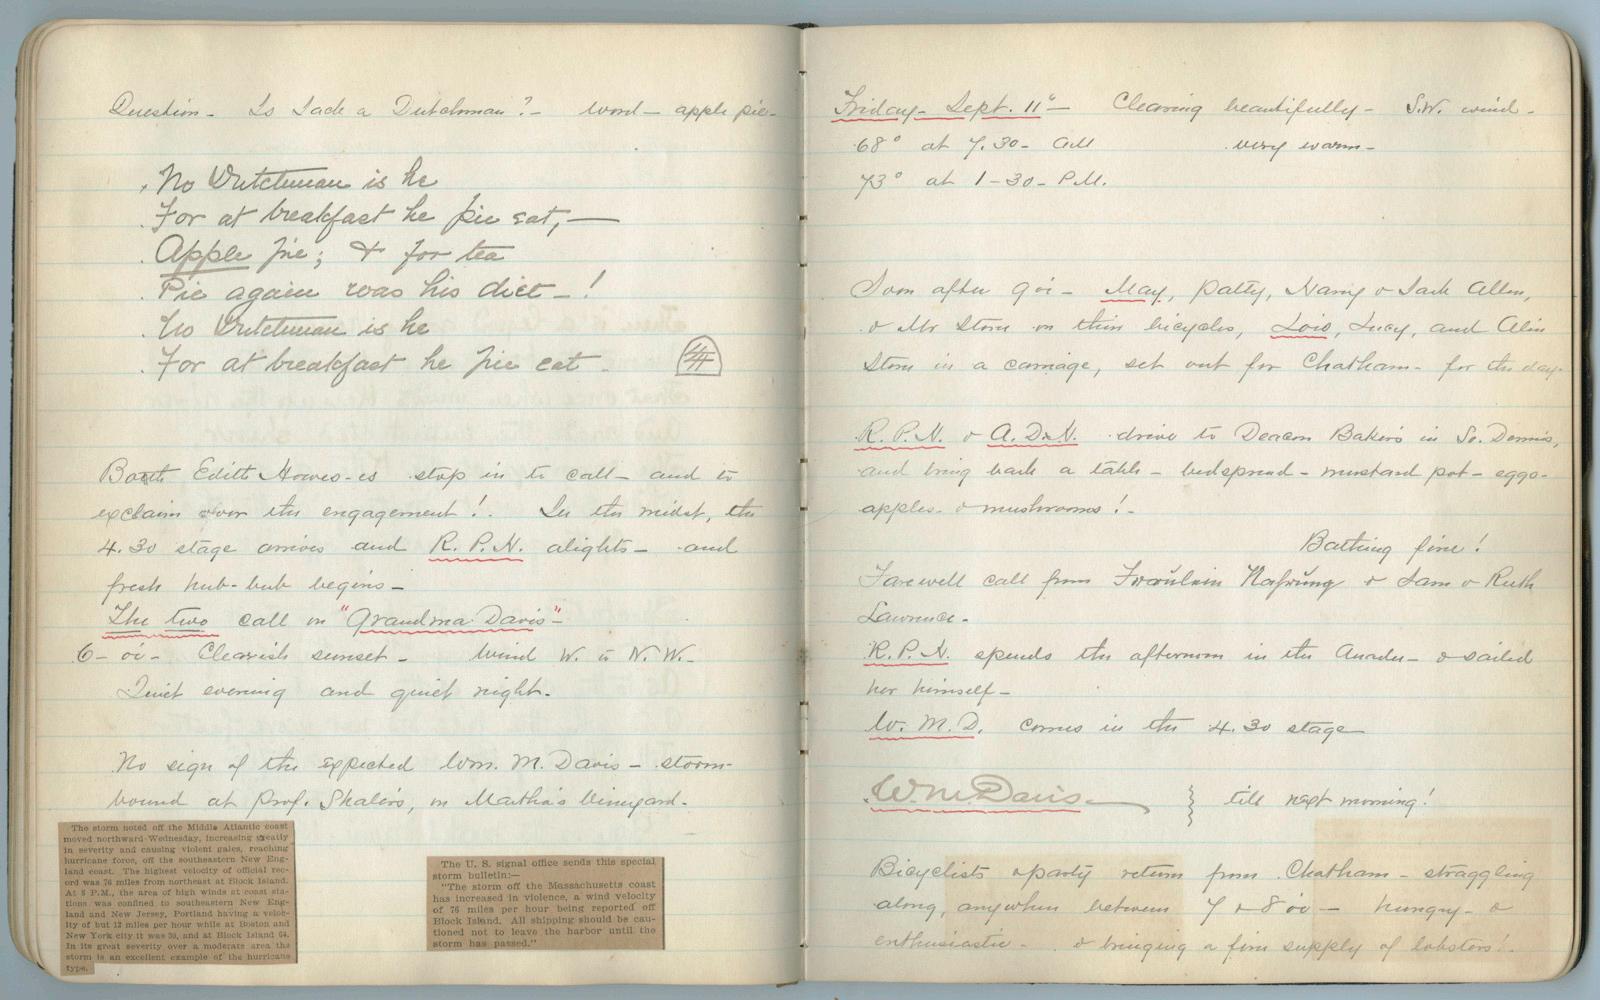 Question - Is Jack a Dutchman? - Word - apple pie -
No Dutchman is he
For at breakfast he pie eat, —
Apple pie; & for tea
Pie again was his diet - !
No Dutchman is he
For at breakfast he pie eat -
Both Edith Howes-es stop in to call - and to
exclaim over the engagement! In the midst, the
4.30 stage arrives and R. P. N. alights - and
fresh hub-bub begins -
The two call on "Grandma Davis" -
6 - Clearish sunset - Wind W. to N. W. -
Quiet evening and quiet night -
No sign of the expected Wm. M. Davis - storm-
bound at Prof. Shaler's, on Martha's Vineyard -
The storm noted off the Middle Atlantic coast
moved northward Wednesday, increasing greatly
in severity and causing violent gales, reaching
hurricane force, off the southeastern New Eng-
land coast. The highest velocity of official rec-
ord was 76 miles from northeast at Block Island.
At 8 P.M., the area of high winds at coast sta-
tions was confined to southeastern New Eng-
land and New Jersey, Portland having a veloc-
ity of but 12 miles per hour while at Boston and
New York city it was 30, and at Block Island 64.
In its great severity over a moderate area the
storm is an excellent example of the hurricane
type.
The U. S. signal office sends this special
storm bulletin:—
"The storm off the Massachusetts coast
has increased in violence, a wind velocity
of 76 miles per hour being reported off
Block Island. All shipping should be cau-
tioned not to leave the harbor until the
storm has passed."
Friday - Sept. 11" - Clearing beautifully - S.W. wind -
68° at 7.30 - AM very warm -
73° at 1-30 - P.M.
Soon after 9 - May, Patty, Nanny & Jack Allen,
& Mr Storm on their bicycles, Lois, Lucy, and
Storm in a carriage, set out for Chatham - for the day -
R. P. N. & A. D. N. drive to Deacon Baker's in So. Dennis,
and bring back a table - bedspread - mustard pot - eggs -
apples - & mushrooms! -
Bathing fine!
Farewell call from Fraulein & Sam & Ruth
Lawrence -
R. P. N. spends the afternoon in the - & sailed
her himself -
W. M. D. comes in the 4.30 stage
W M Davis - till next morning!
Bicyclists & party return from Chatham - straggling
along, anywhere between 7 & 8 - hungry - &
enthusiastic - & bringing a fine supply of lobsters! -